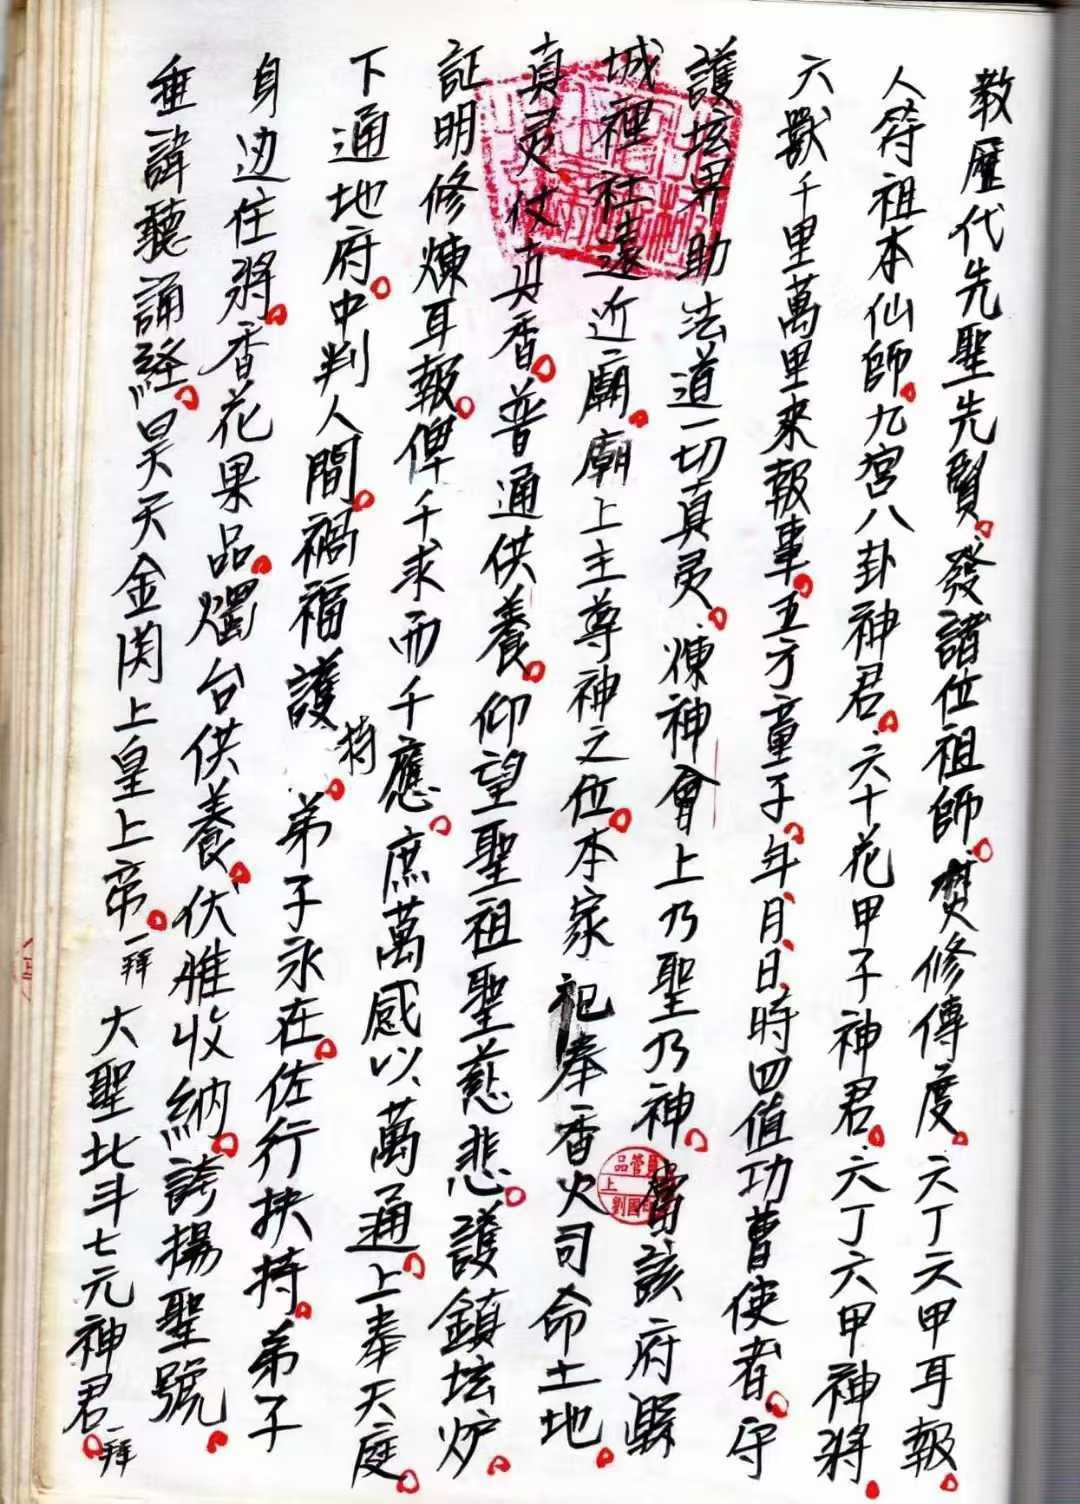 教歷代先聖先賢。發諸位祖師。焚修傳度。六丁六甲耳報。
人符祖本仙師。九宮八卦神君。六十花甲子神君。六丁六甲神將。
六獸千里萬里來報事。五方童子。年、月、日、時四值功曹使者。守
護坛界助法道一切真灵。煉神會上乃聖乃神。當該府縣
城裡社遠近廟。廟上主尊神之位。本家祀奉香火司命土地。
真灵仗真香。普通供養。仰望聖祖聖慈悲。護鎮坛炉。
証明修煉耳報。俾千求而千應。庶萬感以萬通。上奉天庭。
下通地府。中判人間。禍福護持。弟子永在。佐行扶持。弟子
身边住將。香花果品。燭台供養。伏惟收納。誇揚聖號。
垂諱聽誦經。昊天金闕上皇上帝。一拜 大聖北斗七元神君。一拜
品管
上
劉國